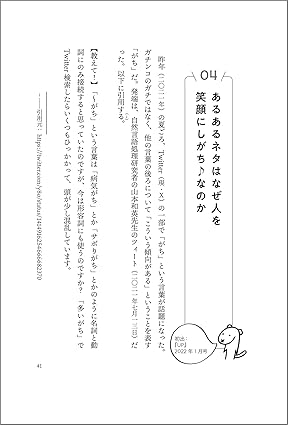 04
あるあるネタはなぜ人を
笑顔にしがち♪なのか
初出：
『UP』
2022年1月号
昨年（二〇二一）の夏ごろ、Twitter（現・X）の一部で「がち」という言葉が話題になった。
ガチンコのガチではなく、他の言葉の後ろについて「こういう傾向がある」ということを表す
「がち」だ。発端は、自然言語処理研究者の山本和英先生のツイート（二〇二一年七月一三日）だ
った。以下に引用する。
【教えて！】「～がち」という言葉は「病気がち」とか「サボりがち」とかのように名詞と動
詞にのみ接続すると思っていたのですが、今は形容詞にも使うのですか？「多いがち」で
Twitter検索したらいくつもひっかかって、頭が少し混乱しています。
——引用元：
41